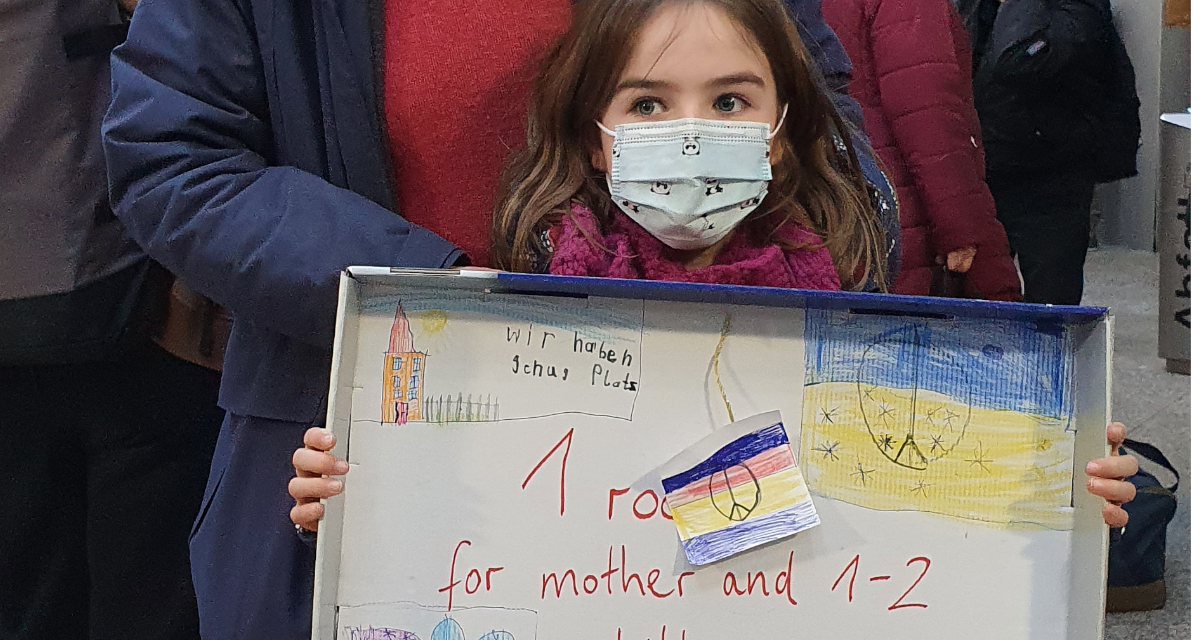 wir haben
schus Plats
1 ro
for mother and 1-2
Abfall